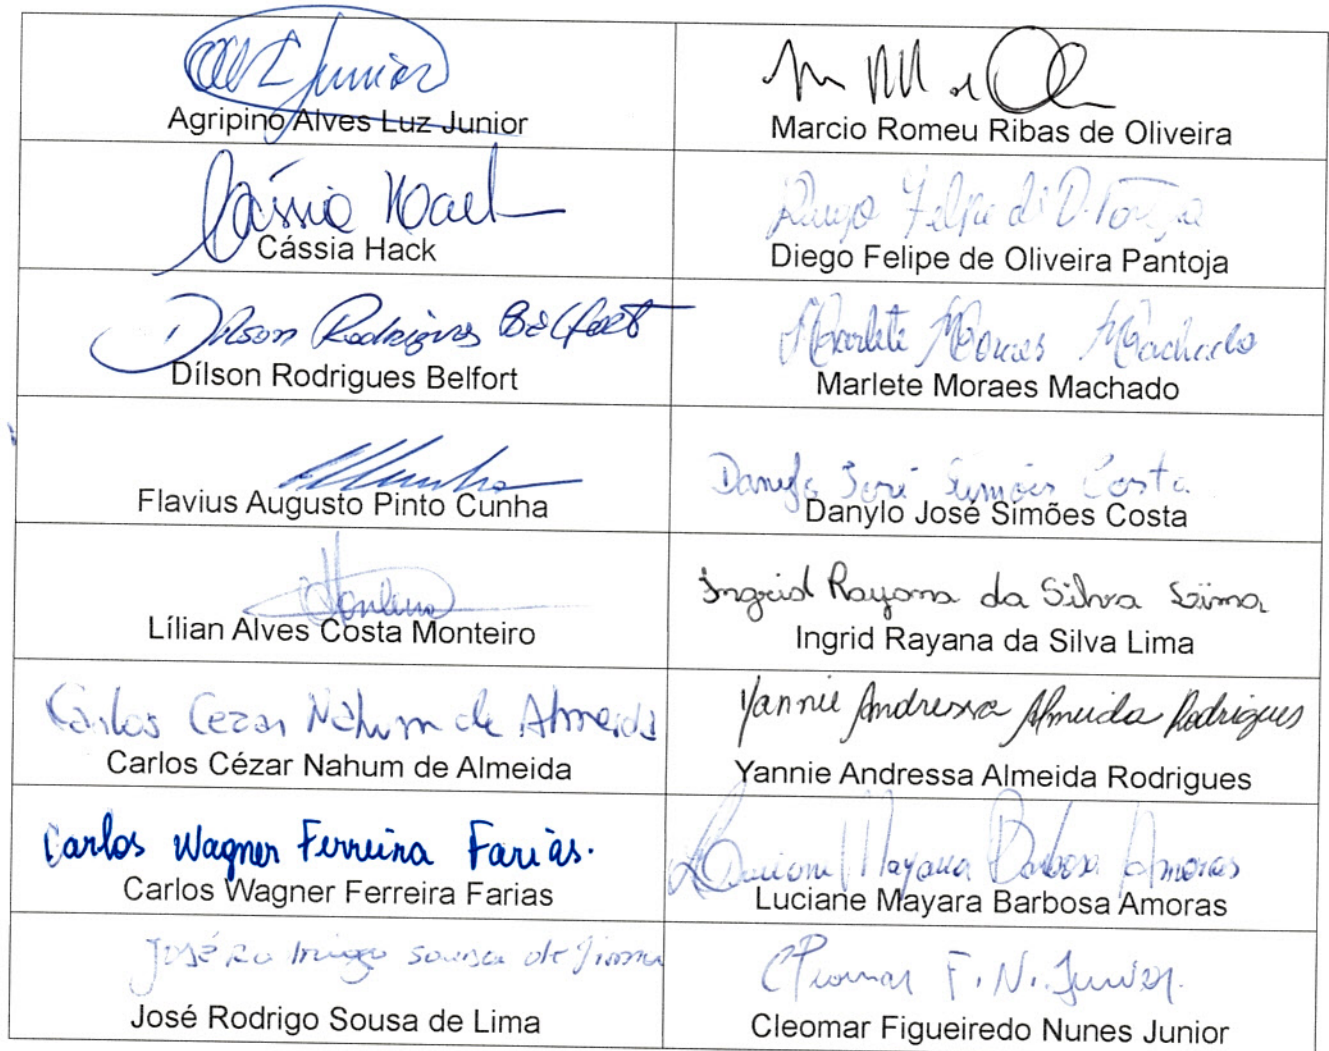 Junior
Agripino Alves Luz Junior
Marcio Romeu Ribas de Oliveira
Cássia Hack
Cássia Hack
Diego Felipe de O. Pantoja
Diego Felipe de Oliveira Pantoja
Dilson Rodrigues Belfort
Dílson Rodrigues Belfort
Marlete Moraes Machado
Marlete Moraes Machado
Cunha
Flavius Augusto Pinto Cunha
Danylo José Simões Costa
Danylo José Simões Costa
Monteiro
Lílian Alves Costa Monteiro
Ingrid Rayana da Silva Lima
Ingrid Rayana da Silva Lima
Carlos Cezar Nahum de Almeida
Carlos Cézar Nahum de Almeida
Yannie Andressa Almeida Rodrigues
Yannie Andressa Almeida Rodrigues
Carlos Wagner Ferreira Farias.
Carlos Wagner Ferreira Farias
Luciane Mayara Barbosa Amoras
Luciane Mayara Barbosa Amoras
José Rodrigo Sousa de Lima
José Rodrigo Sousa de Lima
Cleomar F. N. Junior.
Cleomar Figueiredo Nunes Junior